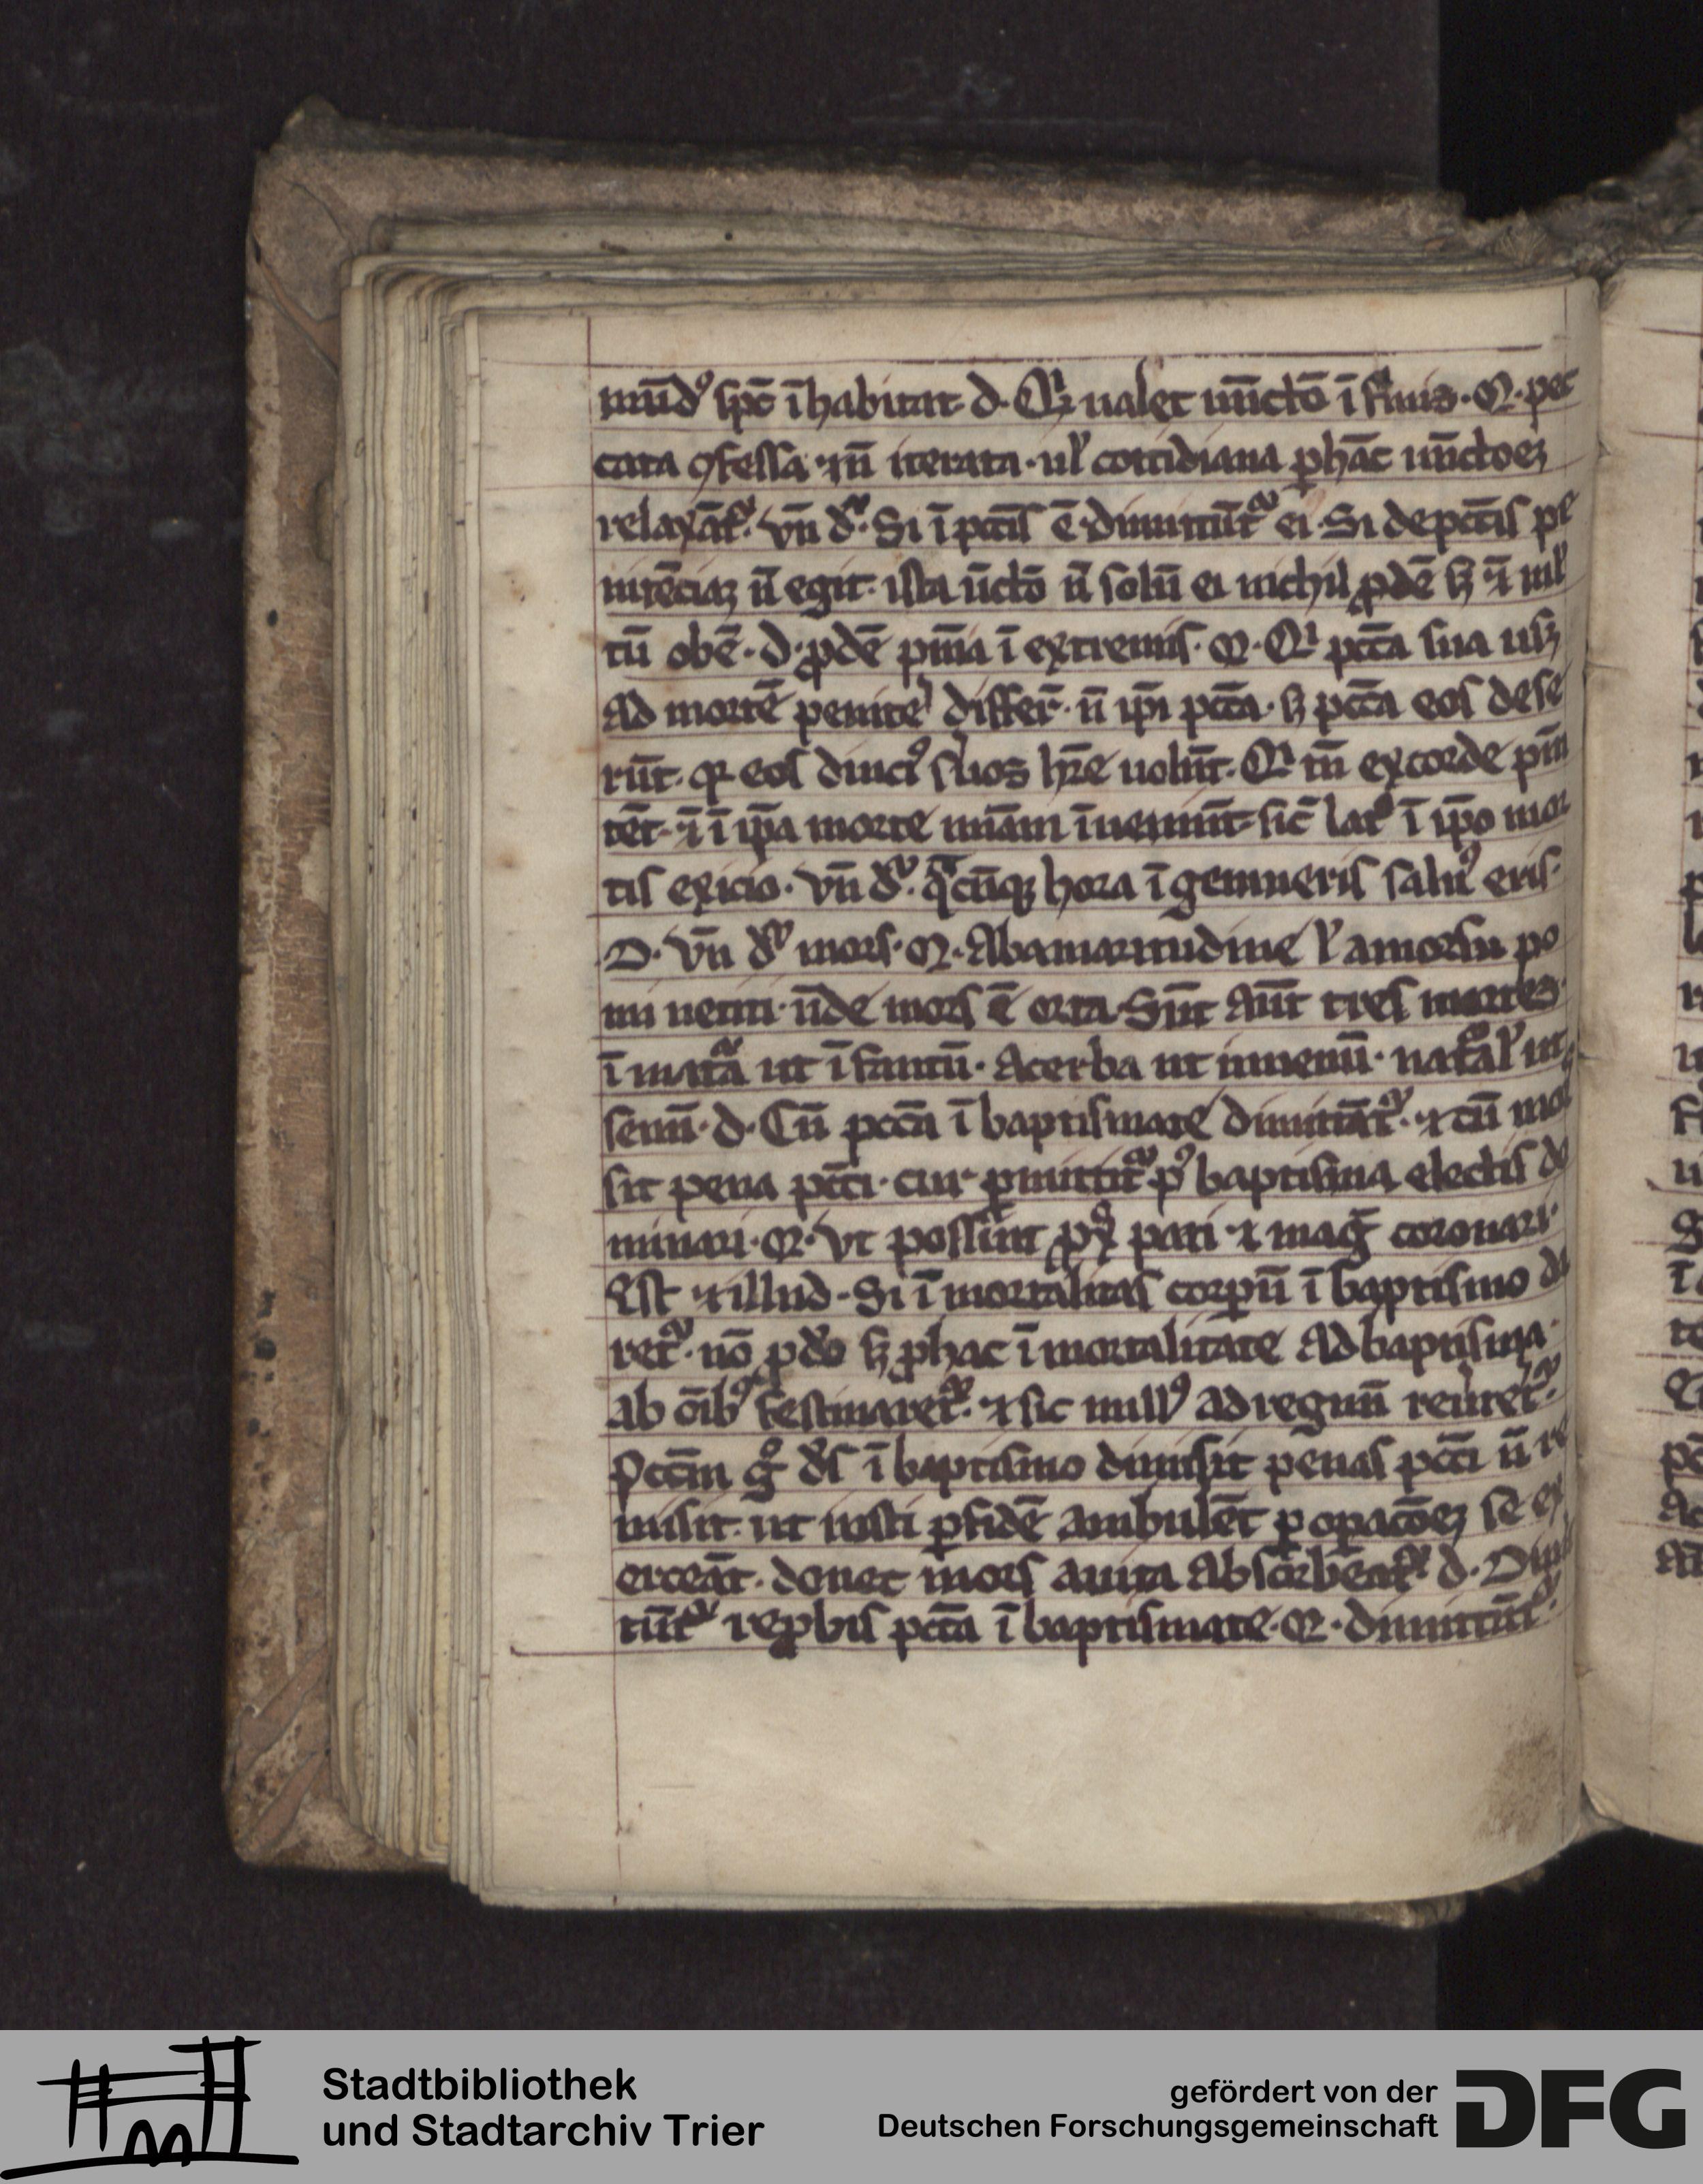 mūdꝰ sp̄c īhabitat. d. Qⁱd ualet ūnctō ī firmis. M. pec
cata ꝯfessa ⁊ n̄ iterata. ul' cottidiana ꝑ hāc ūnctōeʒ
relaxāt᷑. vn̄ dʳ. Si ī pctīs ē dimittūt᷑ ei. Si de pctīs pe
nitēciaʒ n̄ egit. ista ūctō n̄ solū ei nichil ꝓdē sʒ ⁊ī ml'
tū obē. d. ꝓdē pn̄ia ī extremis. M. Qⁱ pctā sua usqʒ
ad mortē penite' differ̄t. n̄ ip̄i pctā. sʒ pctā eos dese
rūt. qꝛ eos diuciꝰ suos hr̄e nolūt. Qⁱ tn̄ ex corde pn̄i
tēt. ⁊ī ī ip̄a morte ueniam īueniūt. sic̄ latº ī ip̄o mor
tis exicio. vn̄ dʳ. qᵃcūqʒ hora īgemueris saluꝰ eris.
D. vn̄ dʳ mors. M. Ab amaritudine l' a morsu po
mi uetiti. ūde mors ē orta. Sūt aūt tres mortes.
īmatᵃ ut īfantū. Acerba ut iuuenū. nat᷑al' ut
senū. d. Cū pctā ī baptismate dimittāt᷑. ⁊ cū mors
sit pena pctī. cur ꝑmittit᷑ pꝰ baptisma electis do
minari. M. Vt possint ꝓ xᵒ pati ⁊ maḡ coronari.
Est ⁊ illud. Si īmortalitas corpū ī baptismo da
ret᷑. nō ꝓ dō sʒ ꝓ hac īmortalitate ad baptisma
ab oībꝰ festinaret᷑. ⁊ sic nullꝰ ad regnū reūret᷑.
Pctm̄ gº ds̄ ī baptismo dimisit penas pctī n̄ re
misit. ut iusti ꝑ fidē ambulēt ꝑ opacōeʒ se ex
erceāt. donec mors a uita absorbeat᷑. d. Dimit
tūt᷑ ⁊ repbis pctā ī baptismate. M. dimittūt᷑.
Stadtbibliothek
und Stadtarchiv Trier
gefördert von der
Deutschen Forschungsgemeinschaft
DFG